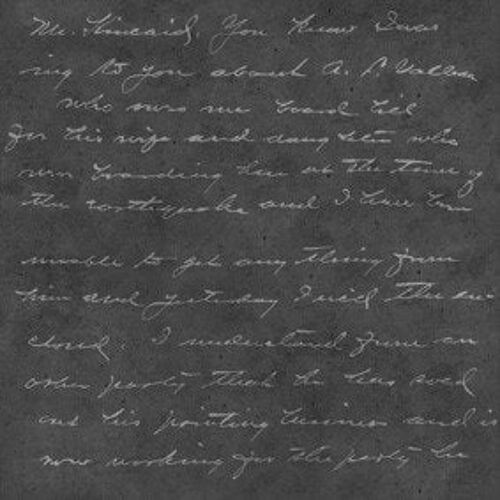 Mr. Kincaid. You know I was
ing to you about A. P.
who owes me board bill
for his wife and daughter who
were boarding here at the time of
the earthquake and I have been
unable to get any thing from
him and yesterday I rec'd the en-
closed. I understand from an
other party that he has sold
out his painting business and is
now working for the party he